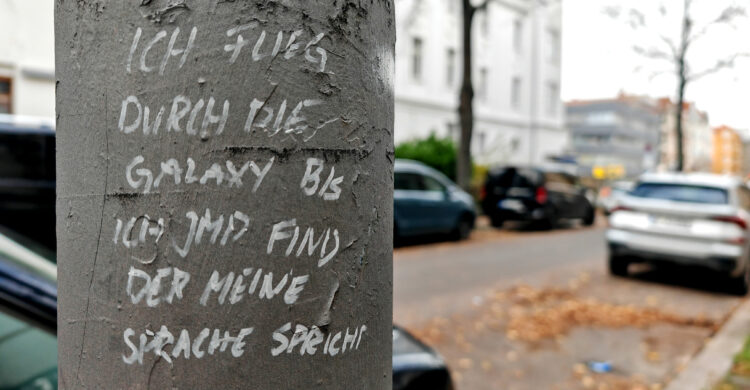 ICH FLIEG
DURCH DIE
GALAXY BIS
ICH JMD FIND
DER MEINE
SPRACHE SPRICHT